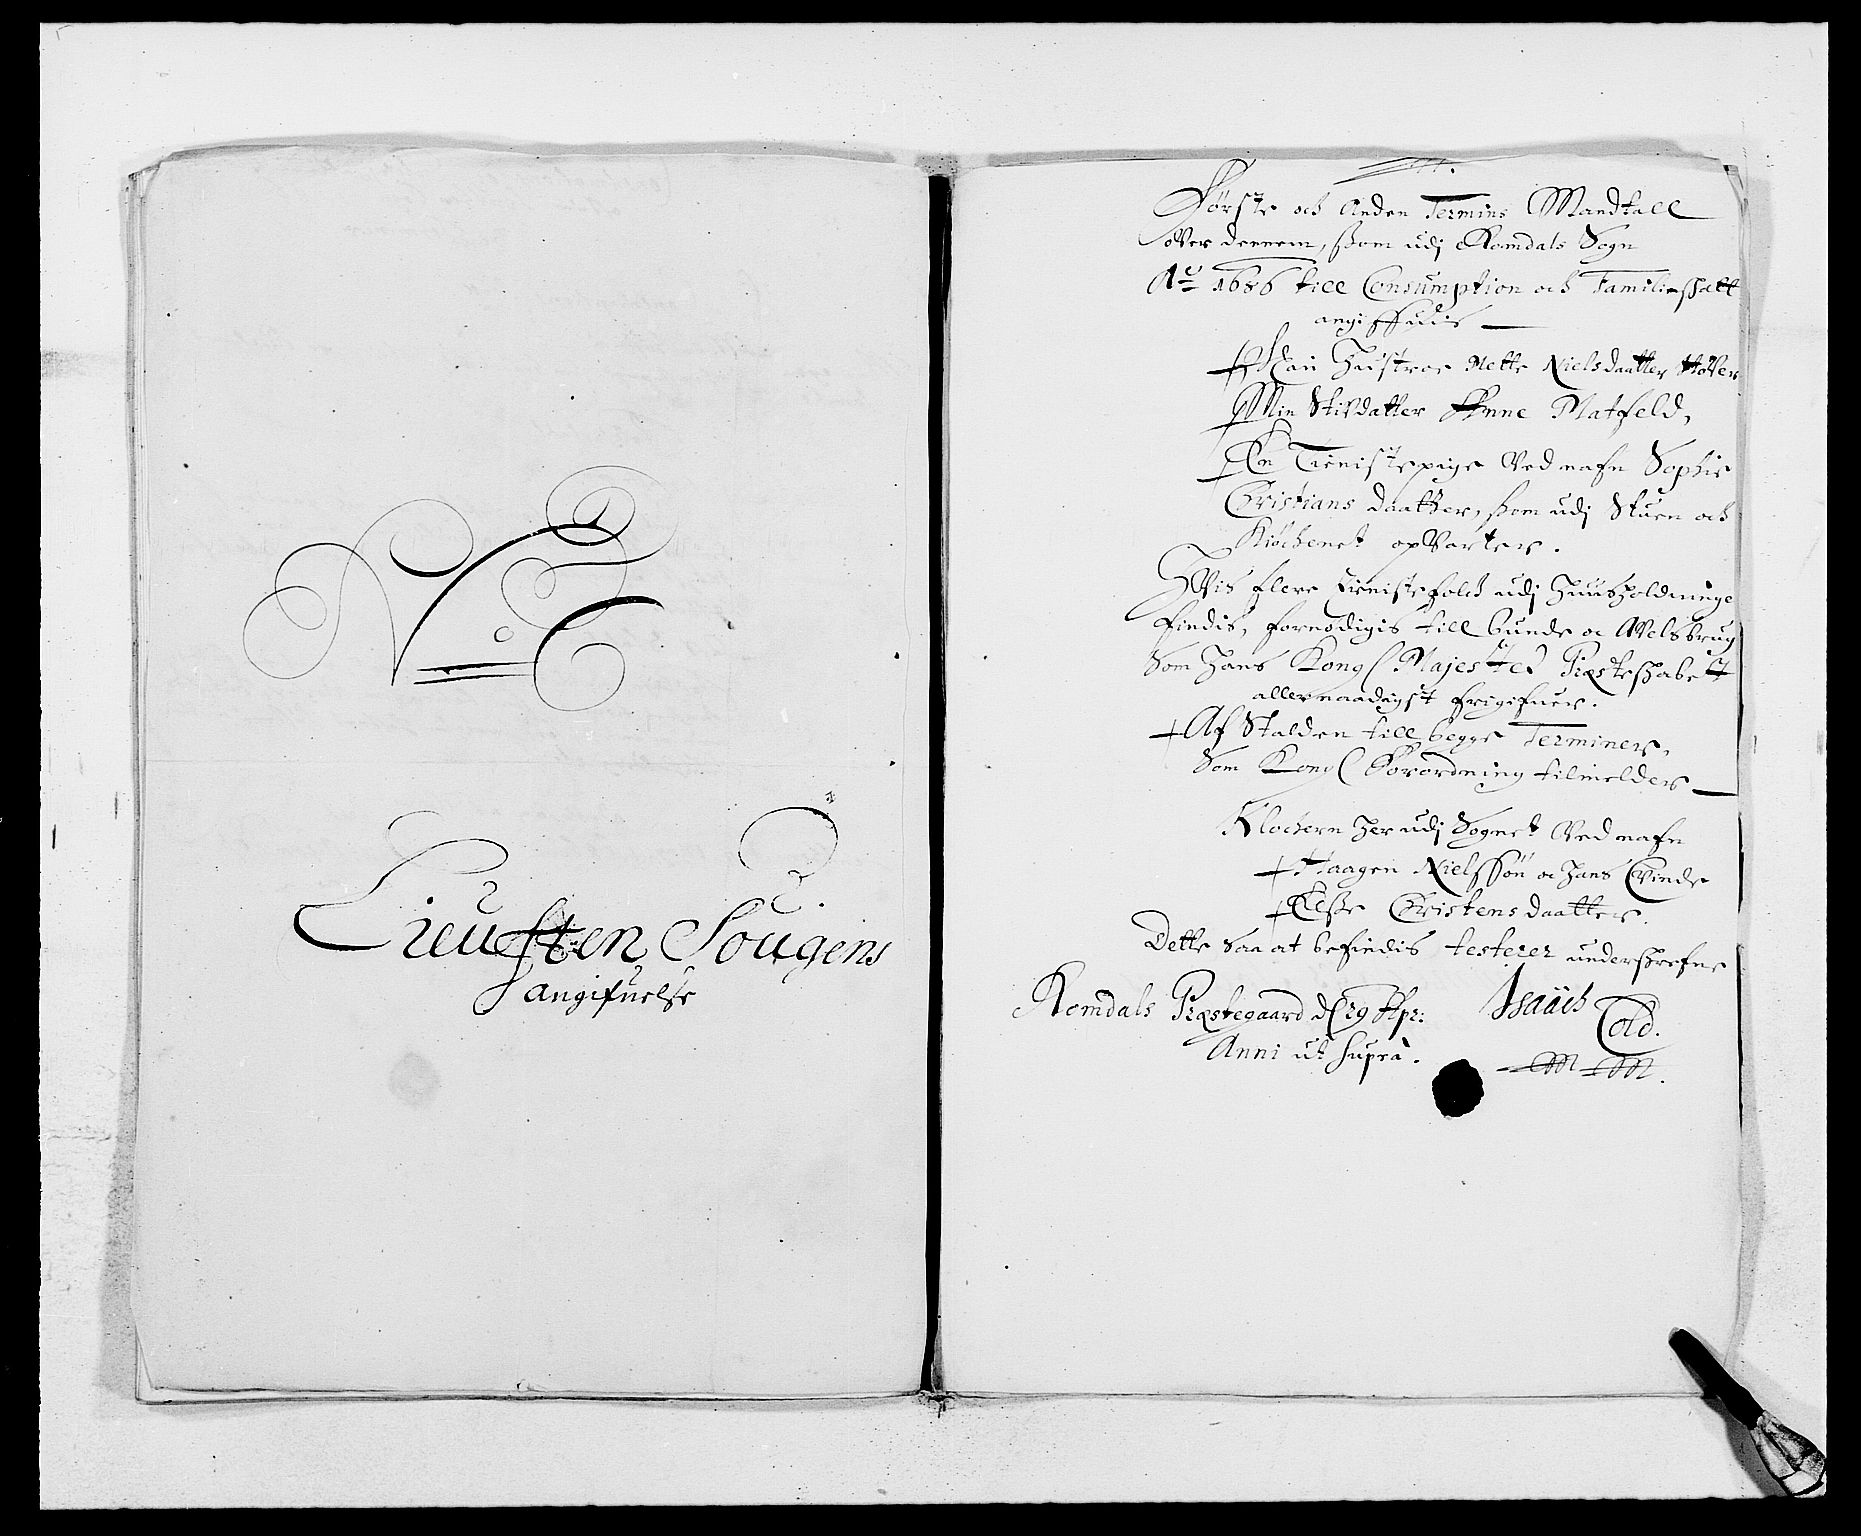 No
Lieusten Sougens
Angifuelse
Første och Anden Termins Mandtall
over dennem, som udj Romdals Sogn
Ao 1686 till Consumption och Familieskatt
angiffuis
Hustroe Mette Nielsdaatter Høver
Min Stifdatter Anne Matfeld,
En Tienistepige Ved nafn Sophie
Christians daatter, som udj Stuen och
Kiøchenet opVarter.
HVis flere tienistefolck udj Huusholdninge
findis, fornødigis till bunde oc AVelsbrug
Som Hans Kongl Majestet Præsteskabet
allernaadigst frigifuer.
Af Stalden till begge Terminer,
Som Kongl Forordning tilmelder
Klochern her udj Sognet Ved nafn
Haagen Nielssøn oc hans Qvinde
Elsse Christensdaatter.
Dette saa at befindis testerer underskrefne
Romdals Præstegaard d 29 Apr:
Anni ut supra.
Isaach
Cold.